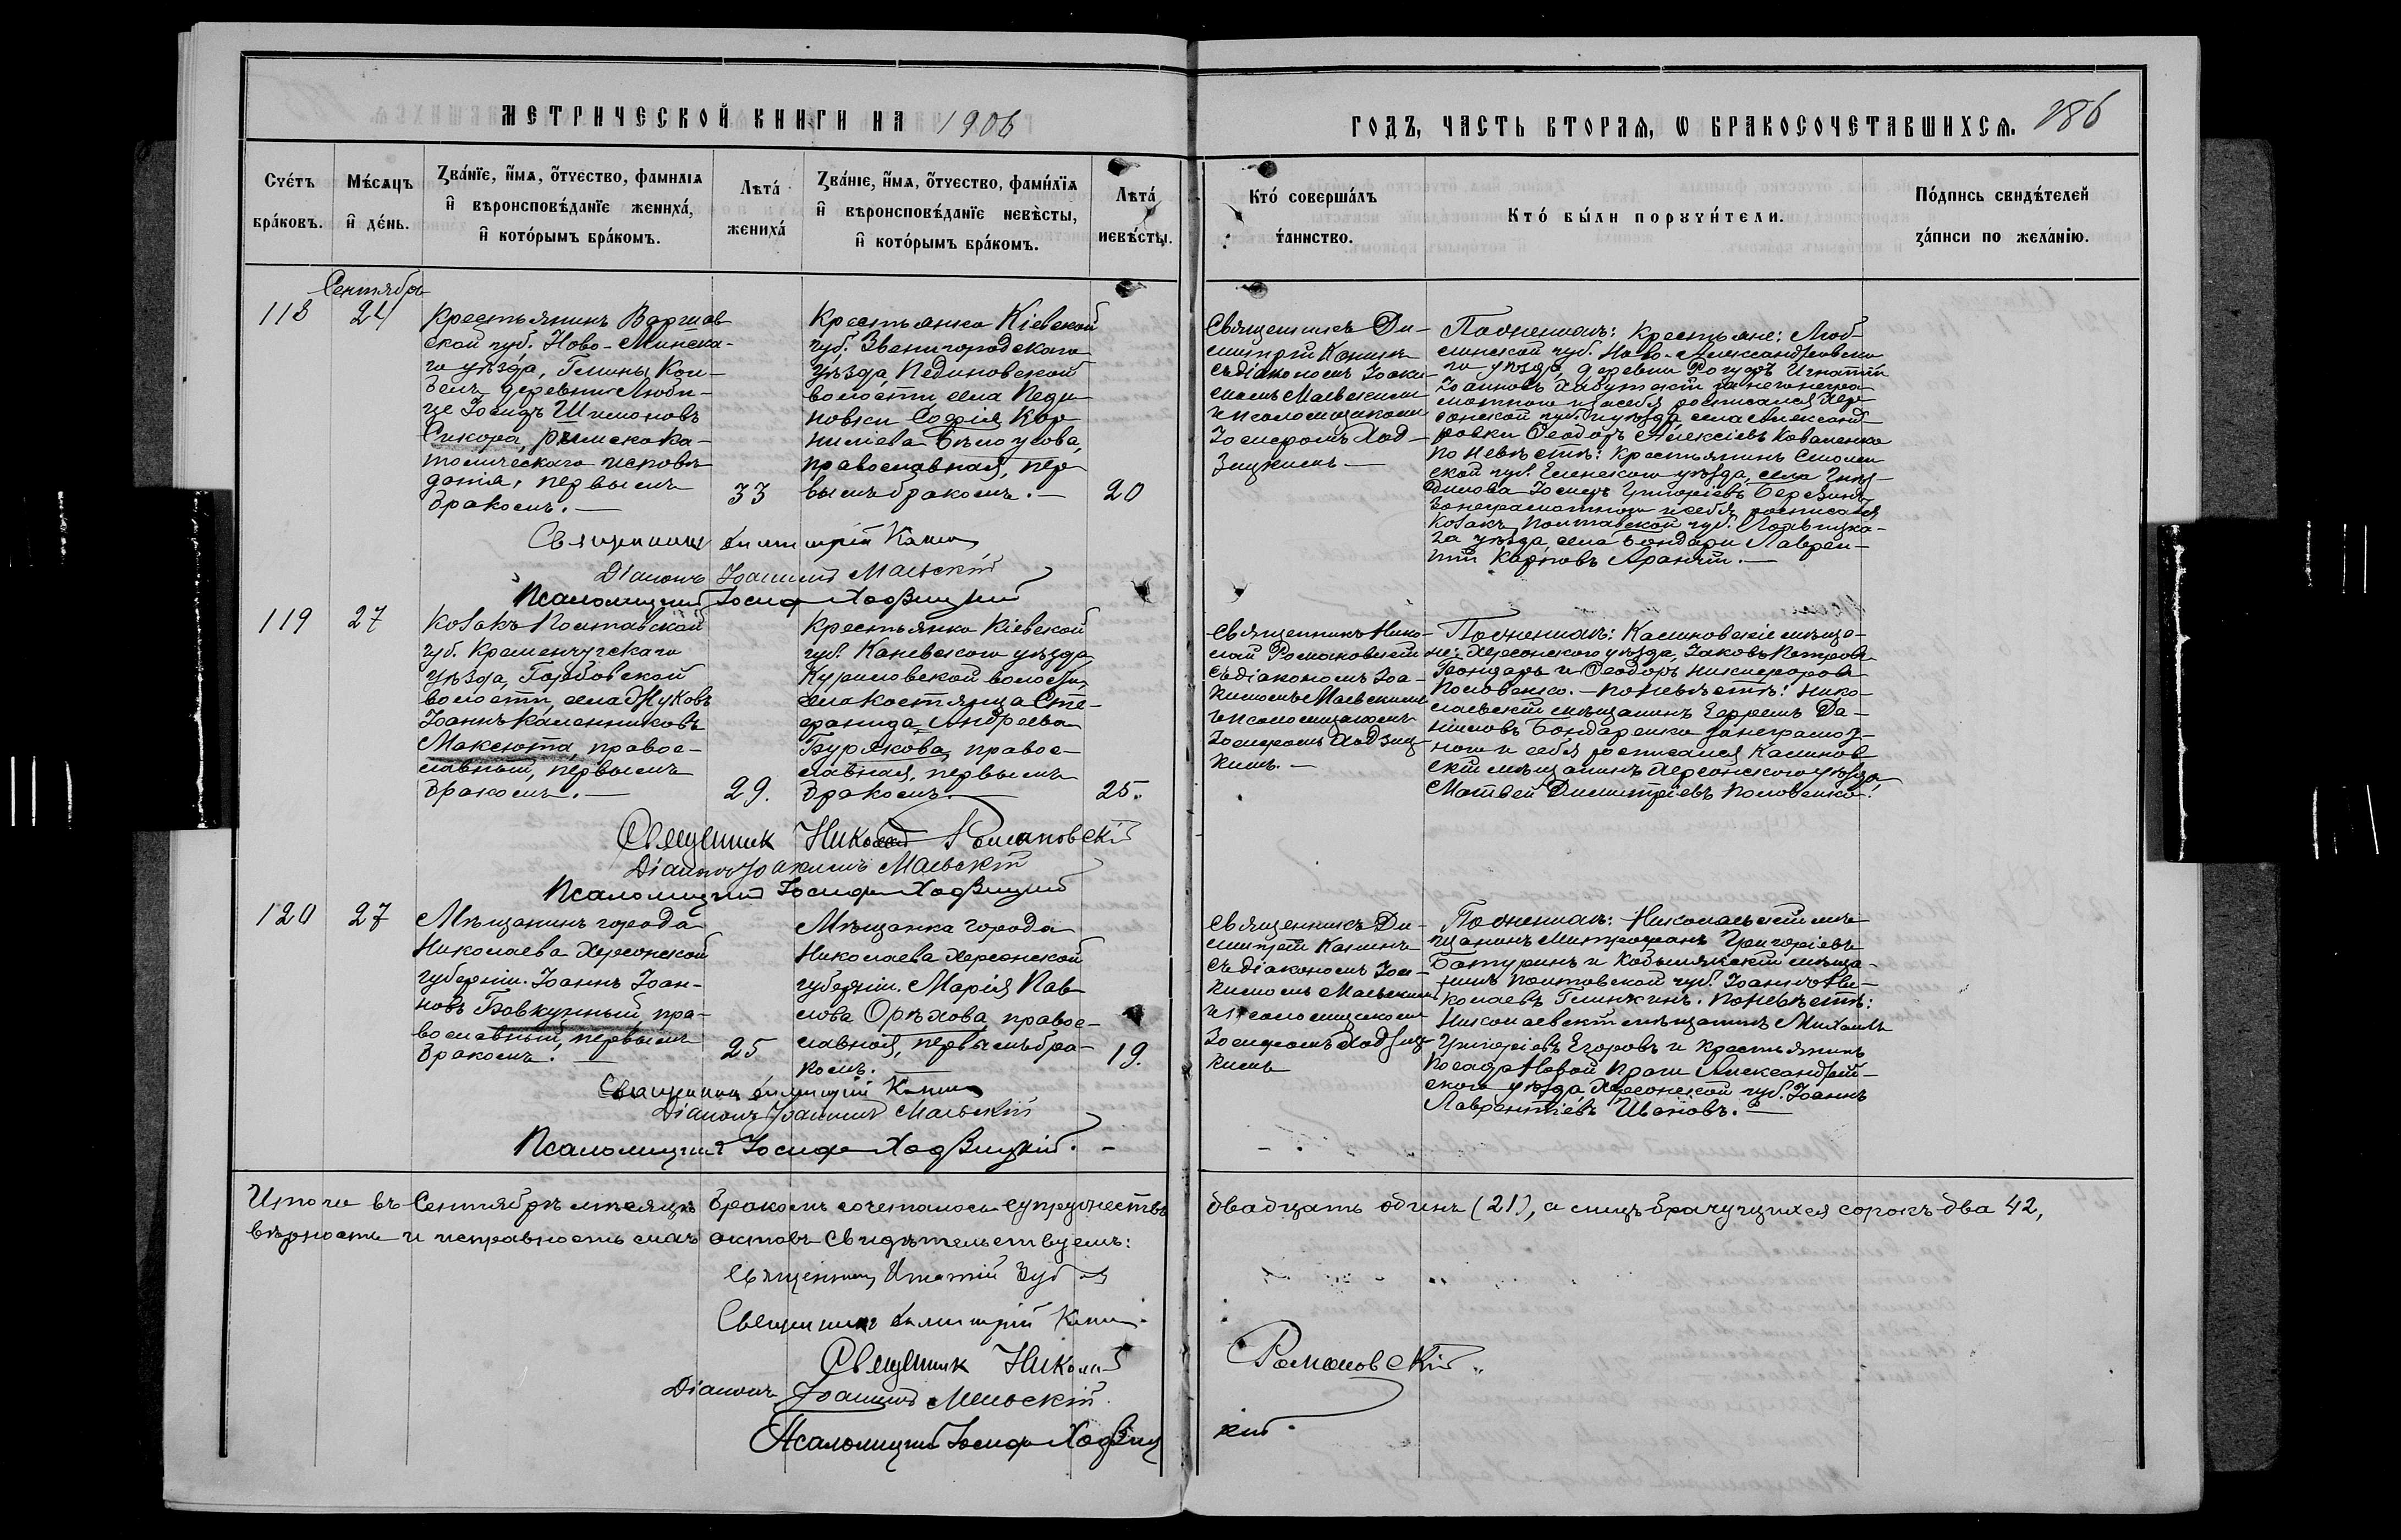 МЕТРИЧЕСКОЙ КНИГИ НА 1906
ГОДЪ, ЧАСТЬ ВТОРАЯ, Ѡ БРАКОСОЧЕТАВШИХСЯ. 186
Счетъ браковъ.
Мѣсяцъ и день.
Званіе, имя, отчество, фамилія
и вѣроисповѣданіе жениха,
и которымъ бракомъ.
Лѣта жениха
Званіе, имя, отчество, фамилія
и вѣроисповѣданіе невѣсты,
и которымъ бракомъ.
Лѣта невѣсты.
Кто совершалъ
таинство.
Кто были поручители.
Подпись свидѣтелей
записи по желанію.
Сентябрь
118
24
Крестьянинъ Варшав-
ской губ. Ново-Минска-
го уѣзда, Гмины
деревни Люби-
це Іосифъ Шимоновъ
Сикора, римско-ка-
толическаго исповѣ-
данія, первымъ
бракомъ. —
33
Крестьянка Кіевской
губ. Звенигородскаго
уѣзда, Пединовской
волости села Педи-
новки Софія Кор-
ниліева Бѣлоусова,
православная, пер-
вымъ бракомъ. —
20
Священникъ Ди-
митрій Капинъ
съ діакономъ Іоаки-
момъ Маевскимъ
и псаломщикомъ
Іосифомъ Ход-
зицкимъ. —
По женихѣ: Крестьяне: Люб-
линской губ. Ново-Александровска-
го уѣзда, деревни Игнатій
Іоанновъ за него негра-
мотнаго и за себя росписался Хер-
сонской губ. и уѣзда, села Александ-
ровки Ѳеодоръ Алексіевъ Коваленко
По невѣстѣ: крестьянинъ Смолен-
ской губ. Ельнскаго уѣзда, села
Іосифъ Григоріевъ
за неграмотнаго и себя росписался
Козакъ Полтавской губ.
уѣзда села Бондари Лаврен-
тій Карповъ
Священникъ Димитрій Капинъ
Діаконъ Іоакимъ Маевскій
Псаломщикъ Іосифъ Ходзицкій
119
27
Козакъ Полтавской
губ. Кременчугскаго
уѣзда, Горбовской
волости, села Жуковъ
Іоаннъ Каленниковъ
Максюта, правос-
лавный, первымъ
бракомъ. —
29.
Крестьянка Кіевской
губ. Каневскаго уѣзда,
Куриловской волости,
села Костянца Сте-
фанида Андреева
Бурякова, правос-
лавная, первымъ
бракомъ. —
25.
Священникъ Нико-
лай Романовскій
съ діакономъ Іоа-
кимомъ Маевскимъ
и псаломщикомъ
Іосифомъ Ходзиц-
кимъ. —
По женихѣ: Калиновскіе мѣща-
не: Херсонскаго уѣзда, Іаковъ Петровъ
Бондарь и Ѳеодоръ Никифоровъ
Половенко. — По невѣстѣ: Нико-
лаевскій мѣщанинъ Ефремъ Да-
ніиловъ Бондаренко за неграмот-
наго и себя росписался Калинов-
скій мѣщанинъ Херсонскаго уѣзда,
Матвей Димитріевъ Половенко.
Священник Николай Романовскій
Діаконъ Іоакимъ Маевскій
Псаломщикъ Іосифъ Ходзицкій
120
27
Мѣщанинъ города
Николаева Херсонской
губерніи. Іоаннъ Іоан-
новъ Бовкунный, пра-
вославный, первымъ
бракомъ. —
25
Мѣщанка города
Николаева Херсонской
губерніи. Марія Пав-
лова Орѣхова, правос-
лавная, первымъ бра-
комъ. —
19.
Священникъ Ди-
митрій Капинъ
съ діакономъ Іоа-
кимомъ Маевскимъ
и псаломщикомъ
Іосифомъ Ходзиц-
кимъ
По женихѣ: Николаевскій мѣ-
щанинъ Митрофанъ Григоріевъ
Батуринъ и Кобылякскій мѣща-
нинъ Полтавской губ. Іоаннъ Ни-
колаевъ Глинкинъ. По невѣстѣ:
Николаевскій мѣщанинъ Михаилъ
Григоріевъ Егоровъ и крестьянинъ
посада Новой Праги Александрій-
скаго уѣзда Херсонской губ. Іоаннъ
Лаврентіевъ Ивановъ. —
Священникъ Димитрій Капинъ
Діаконъ Іоакимъ Маевскій
Псаломщикъ Іосифъ Ходзицкій. —
Итого въ Сентябрѣ мѣсяцѣ бракомъ сочеталось супружествъ двадцать одинъ (21), а лицъ брачущихся сорокъ два 42,
вѣрность и исправность сихъ актовъ свидѣтельствуемъ:
Священникъ Игнатій
Священникъ Димитрій Капинъ
Священник Николай Романовскій
Діаконъ Іоакимъ Маевскій.
Псаломщикъ Іосифъ Ходзицкій.